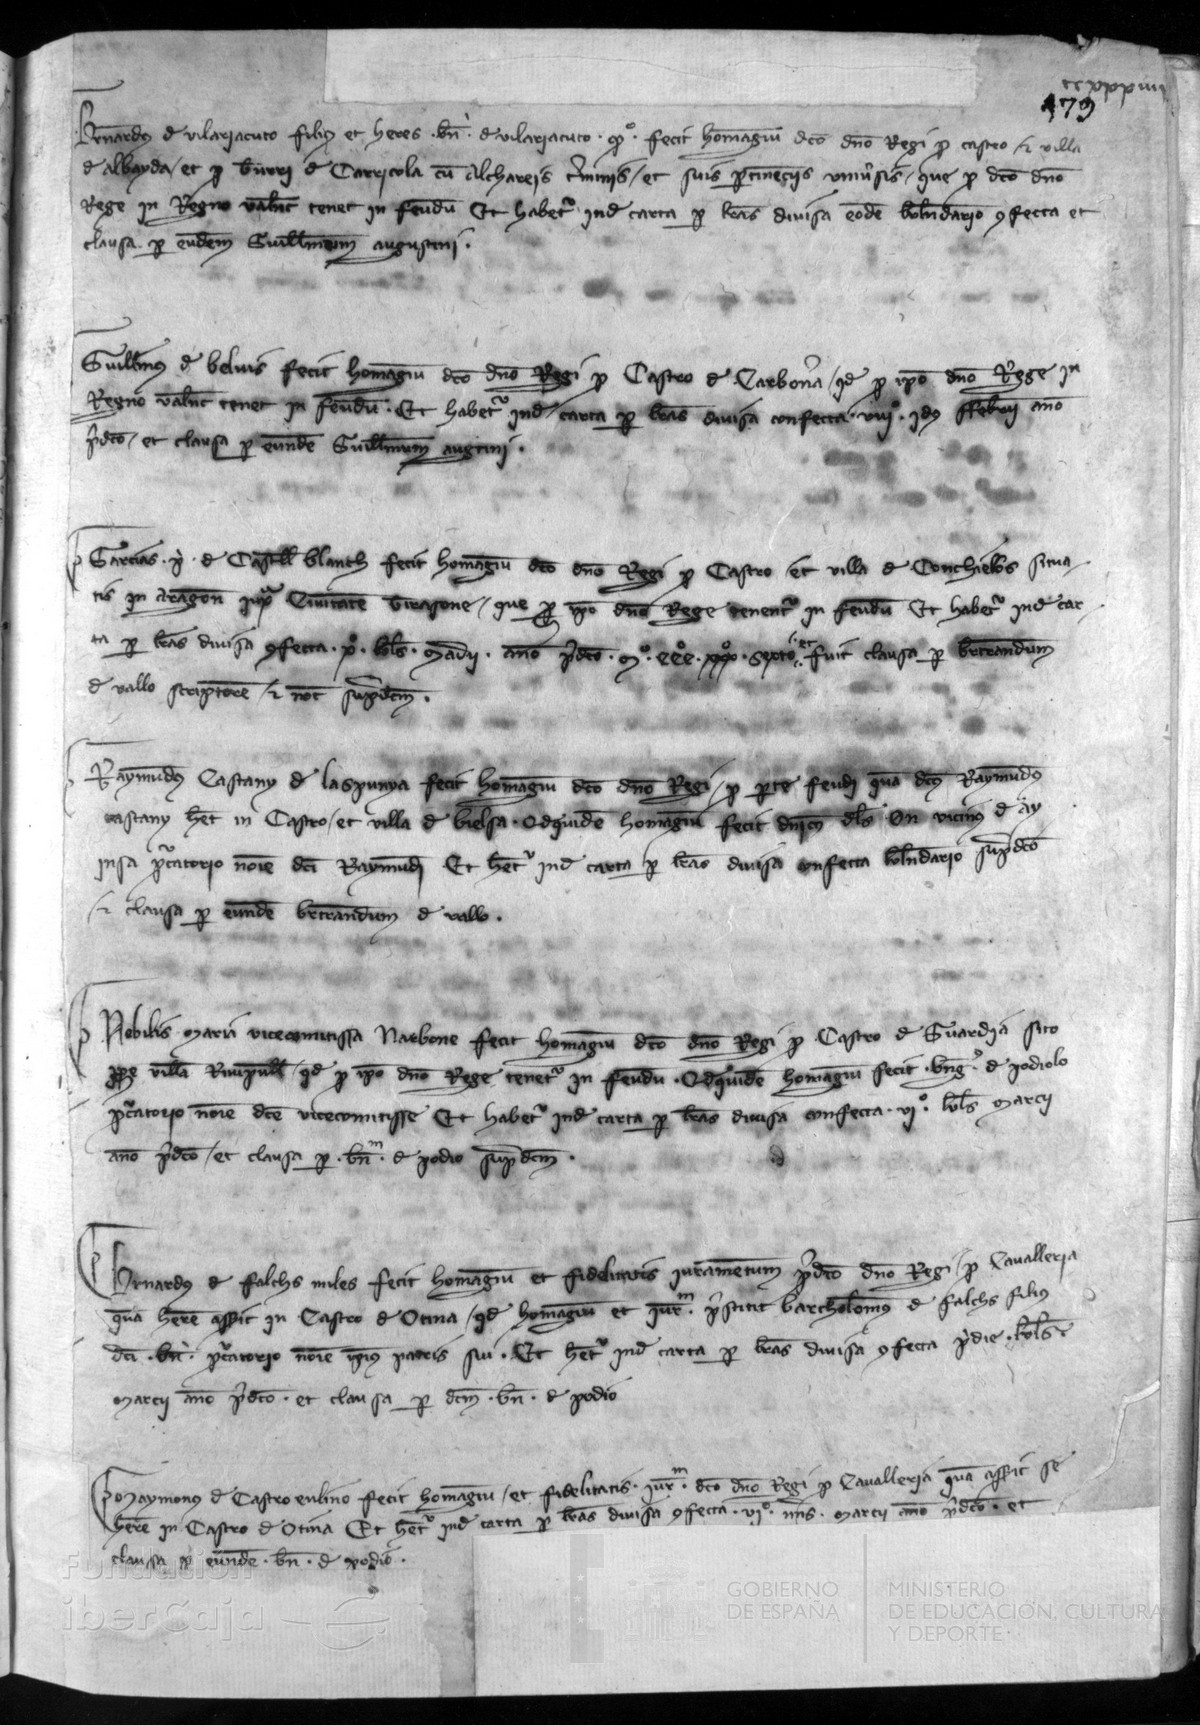 179
Bernardus de vilariacuto filius et heres bn de vilariacuto fecit homagiu dco dno Regi p castro et villa
de albayda et p de Carricola cu Alchareis et suis que p dco dno
Rege in Regno valent tenet in feudu Et habetur ind carta p lras divisa eode kalendario confecta et
clausa p eundem Guillmum augustini
Guillmus de belvis fecit homagiu dco dno Regi p Castro de Carbon'a qd p ipo dno Rege in
Regno valent tenet in feudu Et habetur ind carta p lras divisa confecta viii idus ffebrii anno
pdco et clausa p eunde Guillmum augtini
Garcias p de Castell blanch fecit homagiu dco dno Regi p Castro et villa de Conchiellos situa
tis in Aragon iuxta Civitate Tirasone que p ipo dno Rege tenentur in feudu Et habetur ind car
ta p lras divisa confecta kls madii anno pdco mo ccco xxxo septo et fuit clausa p brtrandum
de vallo scriptore et not supdcm
Raymundus Castany de laspunya fecit homagiu dco dno Regi p pte feudi qua dcus Raymundus
castany het in Castro et villa de bielsa Odquide homagiu fecit dnicus dls vicinus de ay
insa pcatorio noie dci Raymundi Et hetur ind carta p lras divisa confecta kalendario supdco
et clausa p eunde brtrandum de vallo
Nobilis maria vicecomitissa Narbone fecit homagiu dco dno Regi p Castro de Guardia sito
ppe villa Rivipulli qd p ipo dno Rege tenetur in feudu Odquide homagiu fecit bng de podiolo
pcatorio noie dce vicecomitisse Et habetur ind carta p lras divisa confecta vio kls marcii
anno pdco et clausa p bnm de podio supdcm
Bernardus de falchs miles fecit homagiu et fidelitatis iuramentum pdco dno Regi p Cavalleria
qua here assit in Castro de Otina qd homagiu et iurm pstitit bartholomus de falchs filius
dci bn pcatorio noie ipius patris sui Et hetur ind carta p lras divisa confecta pdie kls
marcii anno pdco et clausa p dcm bn de podio
Raymonus de Castro eulino fecit homagiu et fidelitatis iurm dco dno Regi p Cavalleria qua assit se
here in Castro de Otina Et hetur ind carta p lras divisa confecta vio nonis marcii anno pdco et
clausa p eunde bn de podio
Fundación
iberCaja
GOBIERNO
DE ESPAÑA
MINISTERIO
DE EDUCACIÓN, CULTURA
Y DEPORTE